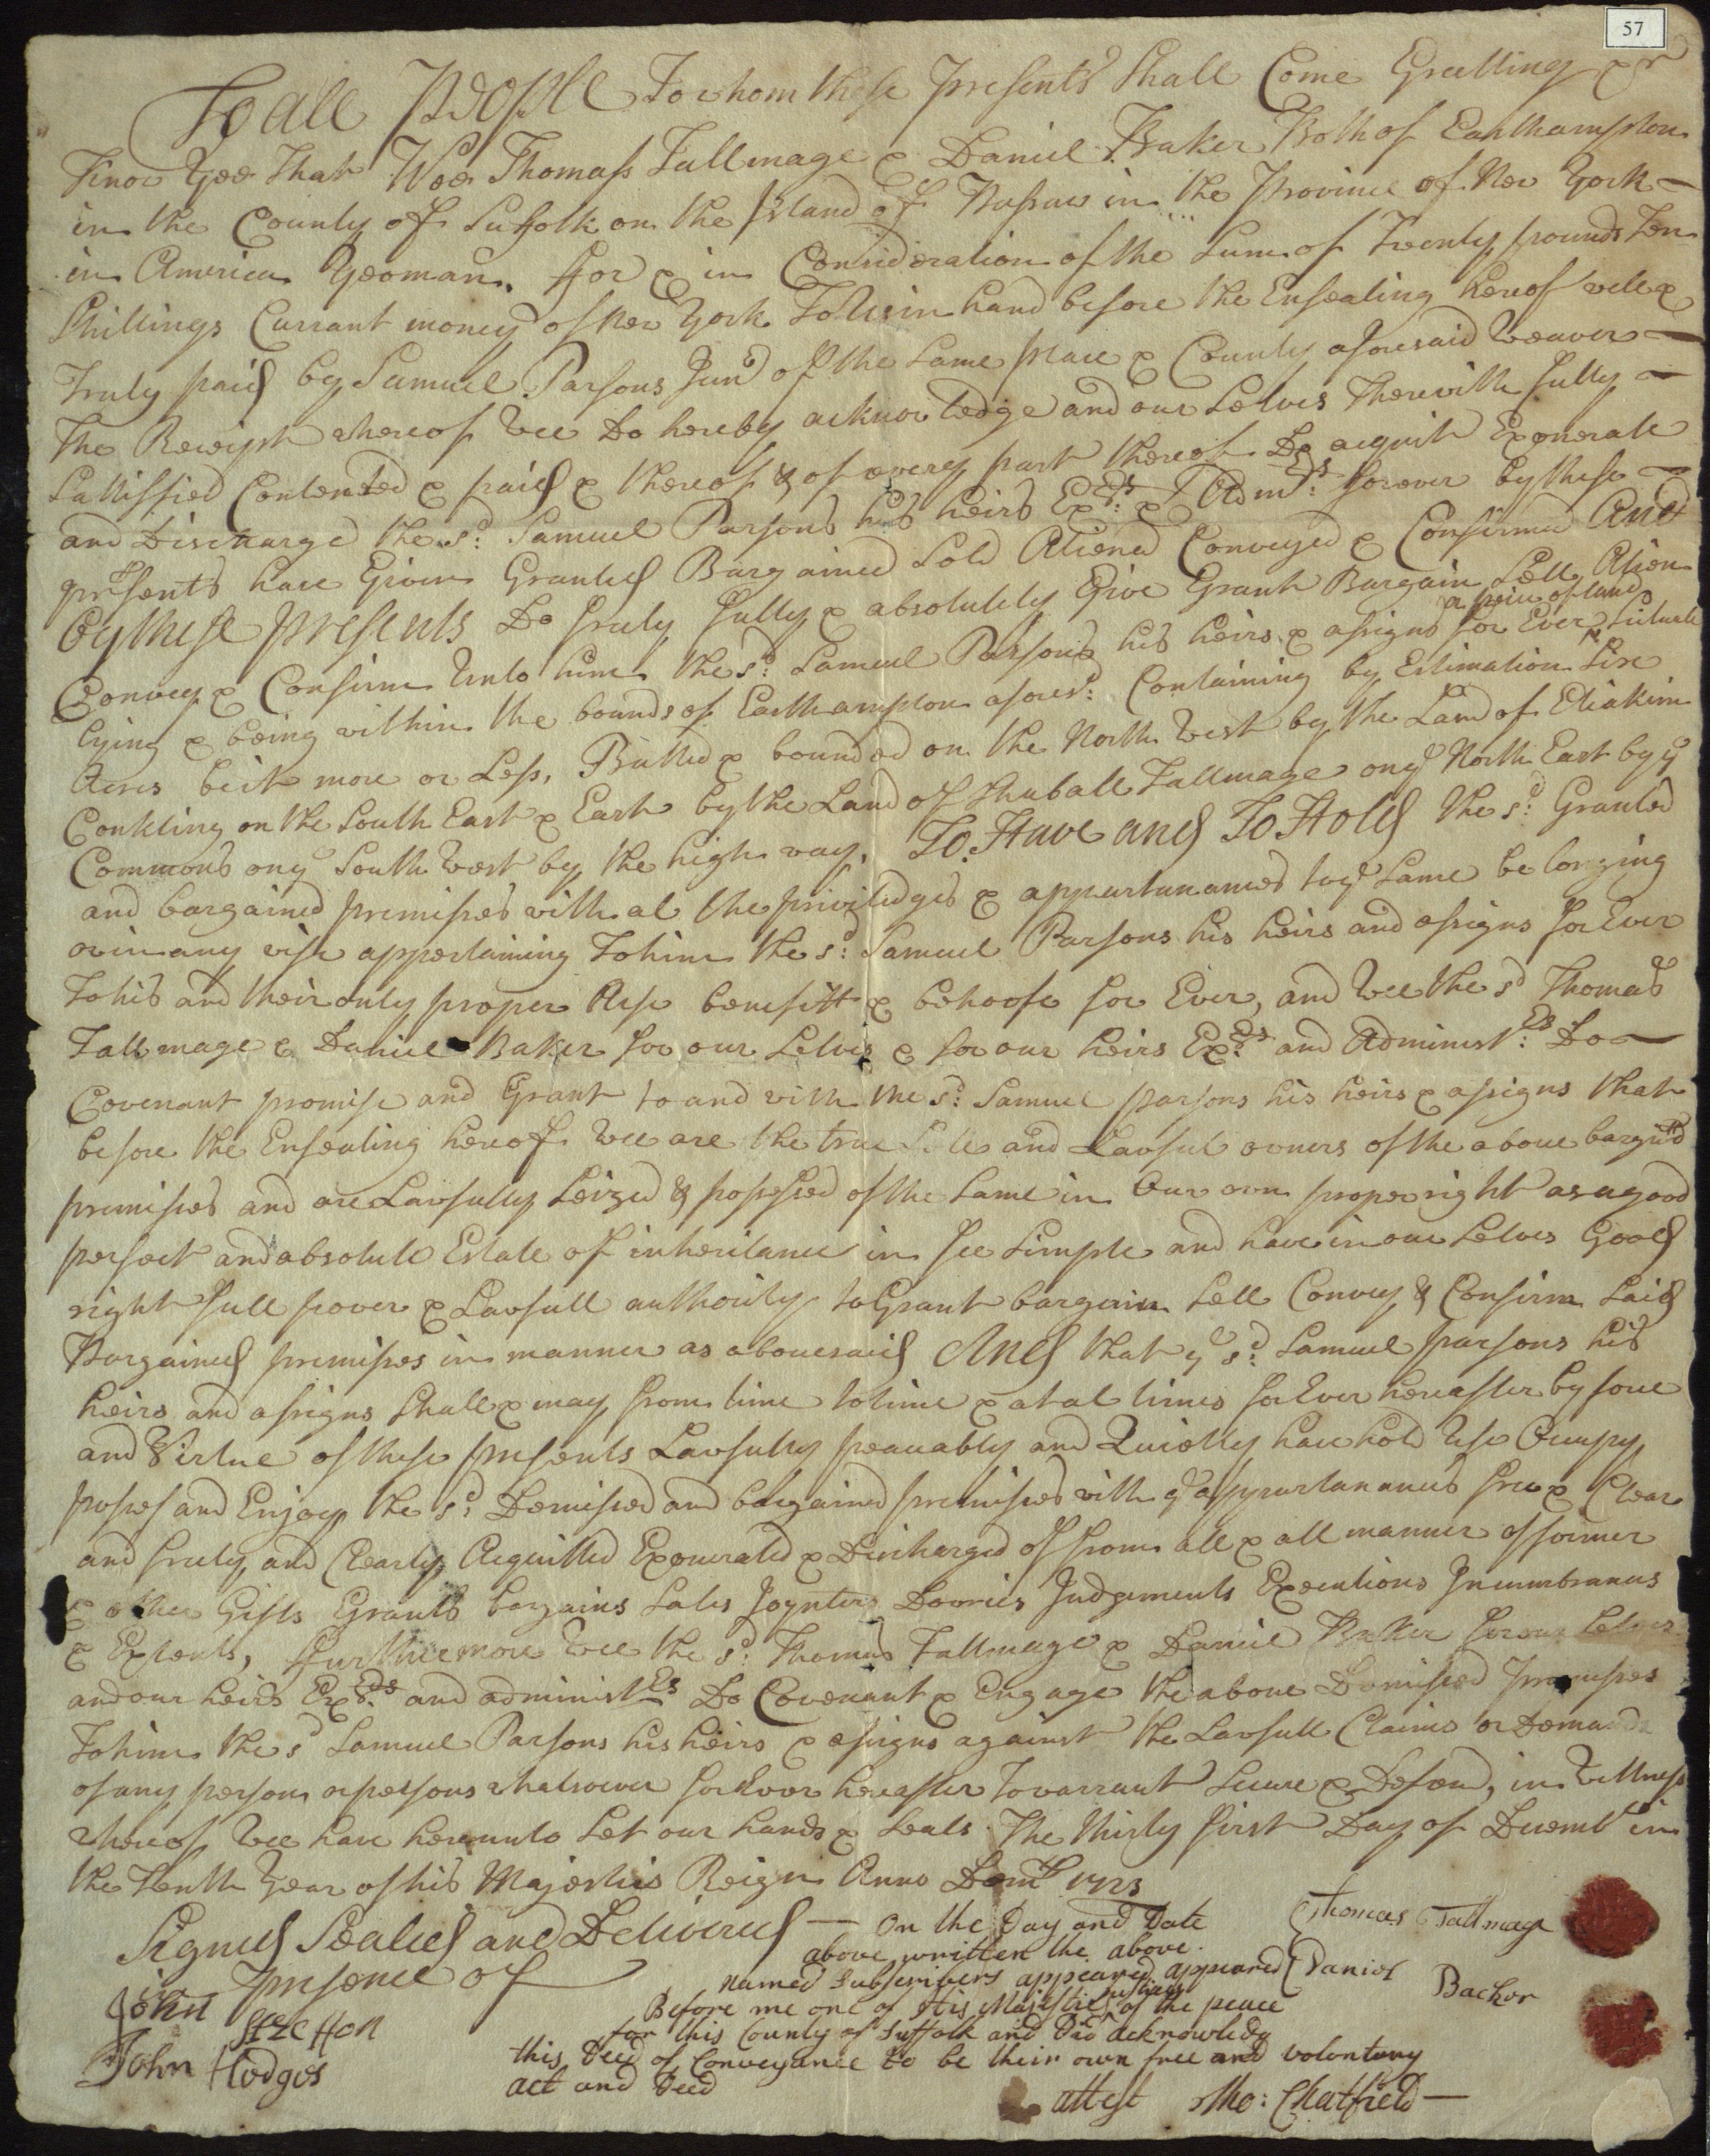 57
To all People To whom these Presents Shall Come Greetting &r
Know Yee That Wee Thomass Tallmage & Daniel Baker Both of Easthampton
in the County of Suffolk on the Island of Nassaw in the Province of New York
in America Yeoman, for & in Consideration of the Sum of Twenty pounds Ten
Shillings Currant money of New York To Us in hand before the Ensealing hereof well &
Truly paid by Samuel Parsons Junr of the Same place & County aforesaid Weaver
The Receipt whereof Wee Do hereby acknowledge and our Selves Therewith fully
Sattisfied Contented & paid & thereof & of every part thereof Do acquit Exonerate
and Discharge the sd: Samuel Parsons his heirs Exrs: & Admrs: forever by these
presents have Given Granted Bargained Sold Aliened Conveyed & Confirmed And
by these presents Do freely fully & absolutely Give Grant Bargain Sell Alien
Convey & Confirm Unto him the sd: Samuel Parsons his heirs & assigns for Ever a peice of land Situate
lying & being within the bounds of Easthampton aforesd: Containing by Estimation Six
Acres be it more or Less, Butted & bounded on the North West by the Land of Eliakim
Conkling on the South East & East by the Land of Shuball Tallmage on ye North East by ye
Commons on ye South West by the high way, To Have and To Hold the sd: Granted
and bargained premisses with al the priviledges & appurtunances to ye Same belonging
or in any wise appertaining To him the sd: Samuel Parsons his heirs and assigns for Ever
To his and their only proper Use benefitt & behoofe for Ever, and Wee the sd Thomas
Tallmage & Daniel Baker for our Selves & for our heirs Exrs: and Administrs: Do
Covenant promise and Grant to and with the sd: Samuel parsons his heirs & assigns that
before the Ensealing hereof Wee are the true Sole and Lawful owners of the above bargind
premisses and are Lawfully Seized & possessed of the Same in Our own proper right as a good
perfect and absolute Estate of inheritance in fee Simple and have in our Selves Good
right full power & Lawfull authority to Grant bargain Sell Convey & Confirm Said
Bargained premisses in manner as abovesaid And that ye sd: Samuel parsons his
heirs and assigns Shall & may from time to time & at al times for Ever hereafter by force
and Virtue of these presents Lawfully peaceably and Quietly have hold Use Occupy
posses and Enjoy the sd: Demissed and bargained premisses with ye appurtanances free & Clear
and freely and Clearly Acquitted Exonerated & Discharged of from all & all manner of former
& other Gifts Grants bargains Sales Joynters Dowries Judgements Executions Incumbrances
& Extents, furthermore Wee the sd: Thomas Tallmage & Daniel Baker for our Selves
and our heirs Exrs: and administrs Do Covenant & Engage the above Demissed premisses
To him the sd Samuel Parsons his heirs & assigns against the Lawfull Claims or Demands
of any person or persons whatsoever forEver hereafter to warrant Secure & Defend, in Wittness
whereof Wee have hereunto Set our hands & Seals The thirty first Day of Decembr in
the Tenth Year of his Majesties Reign Anno Domi 1723
Signed Sealed and Delivered
in presence of
John Stretton
John Hodges
On the Day and Date
above written the above
named Subscrivers appeared appeared
Before me one of His Majesties Justices of the peace
for this County of Suffolk and Did acknowledg
this Deed of Conveyance to be their own free and volontary
act and Deed
attest Tho: Chatfield
Thomas Tallmage
Daniel Backer